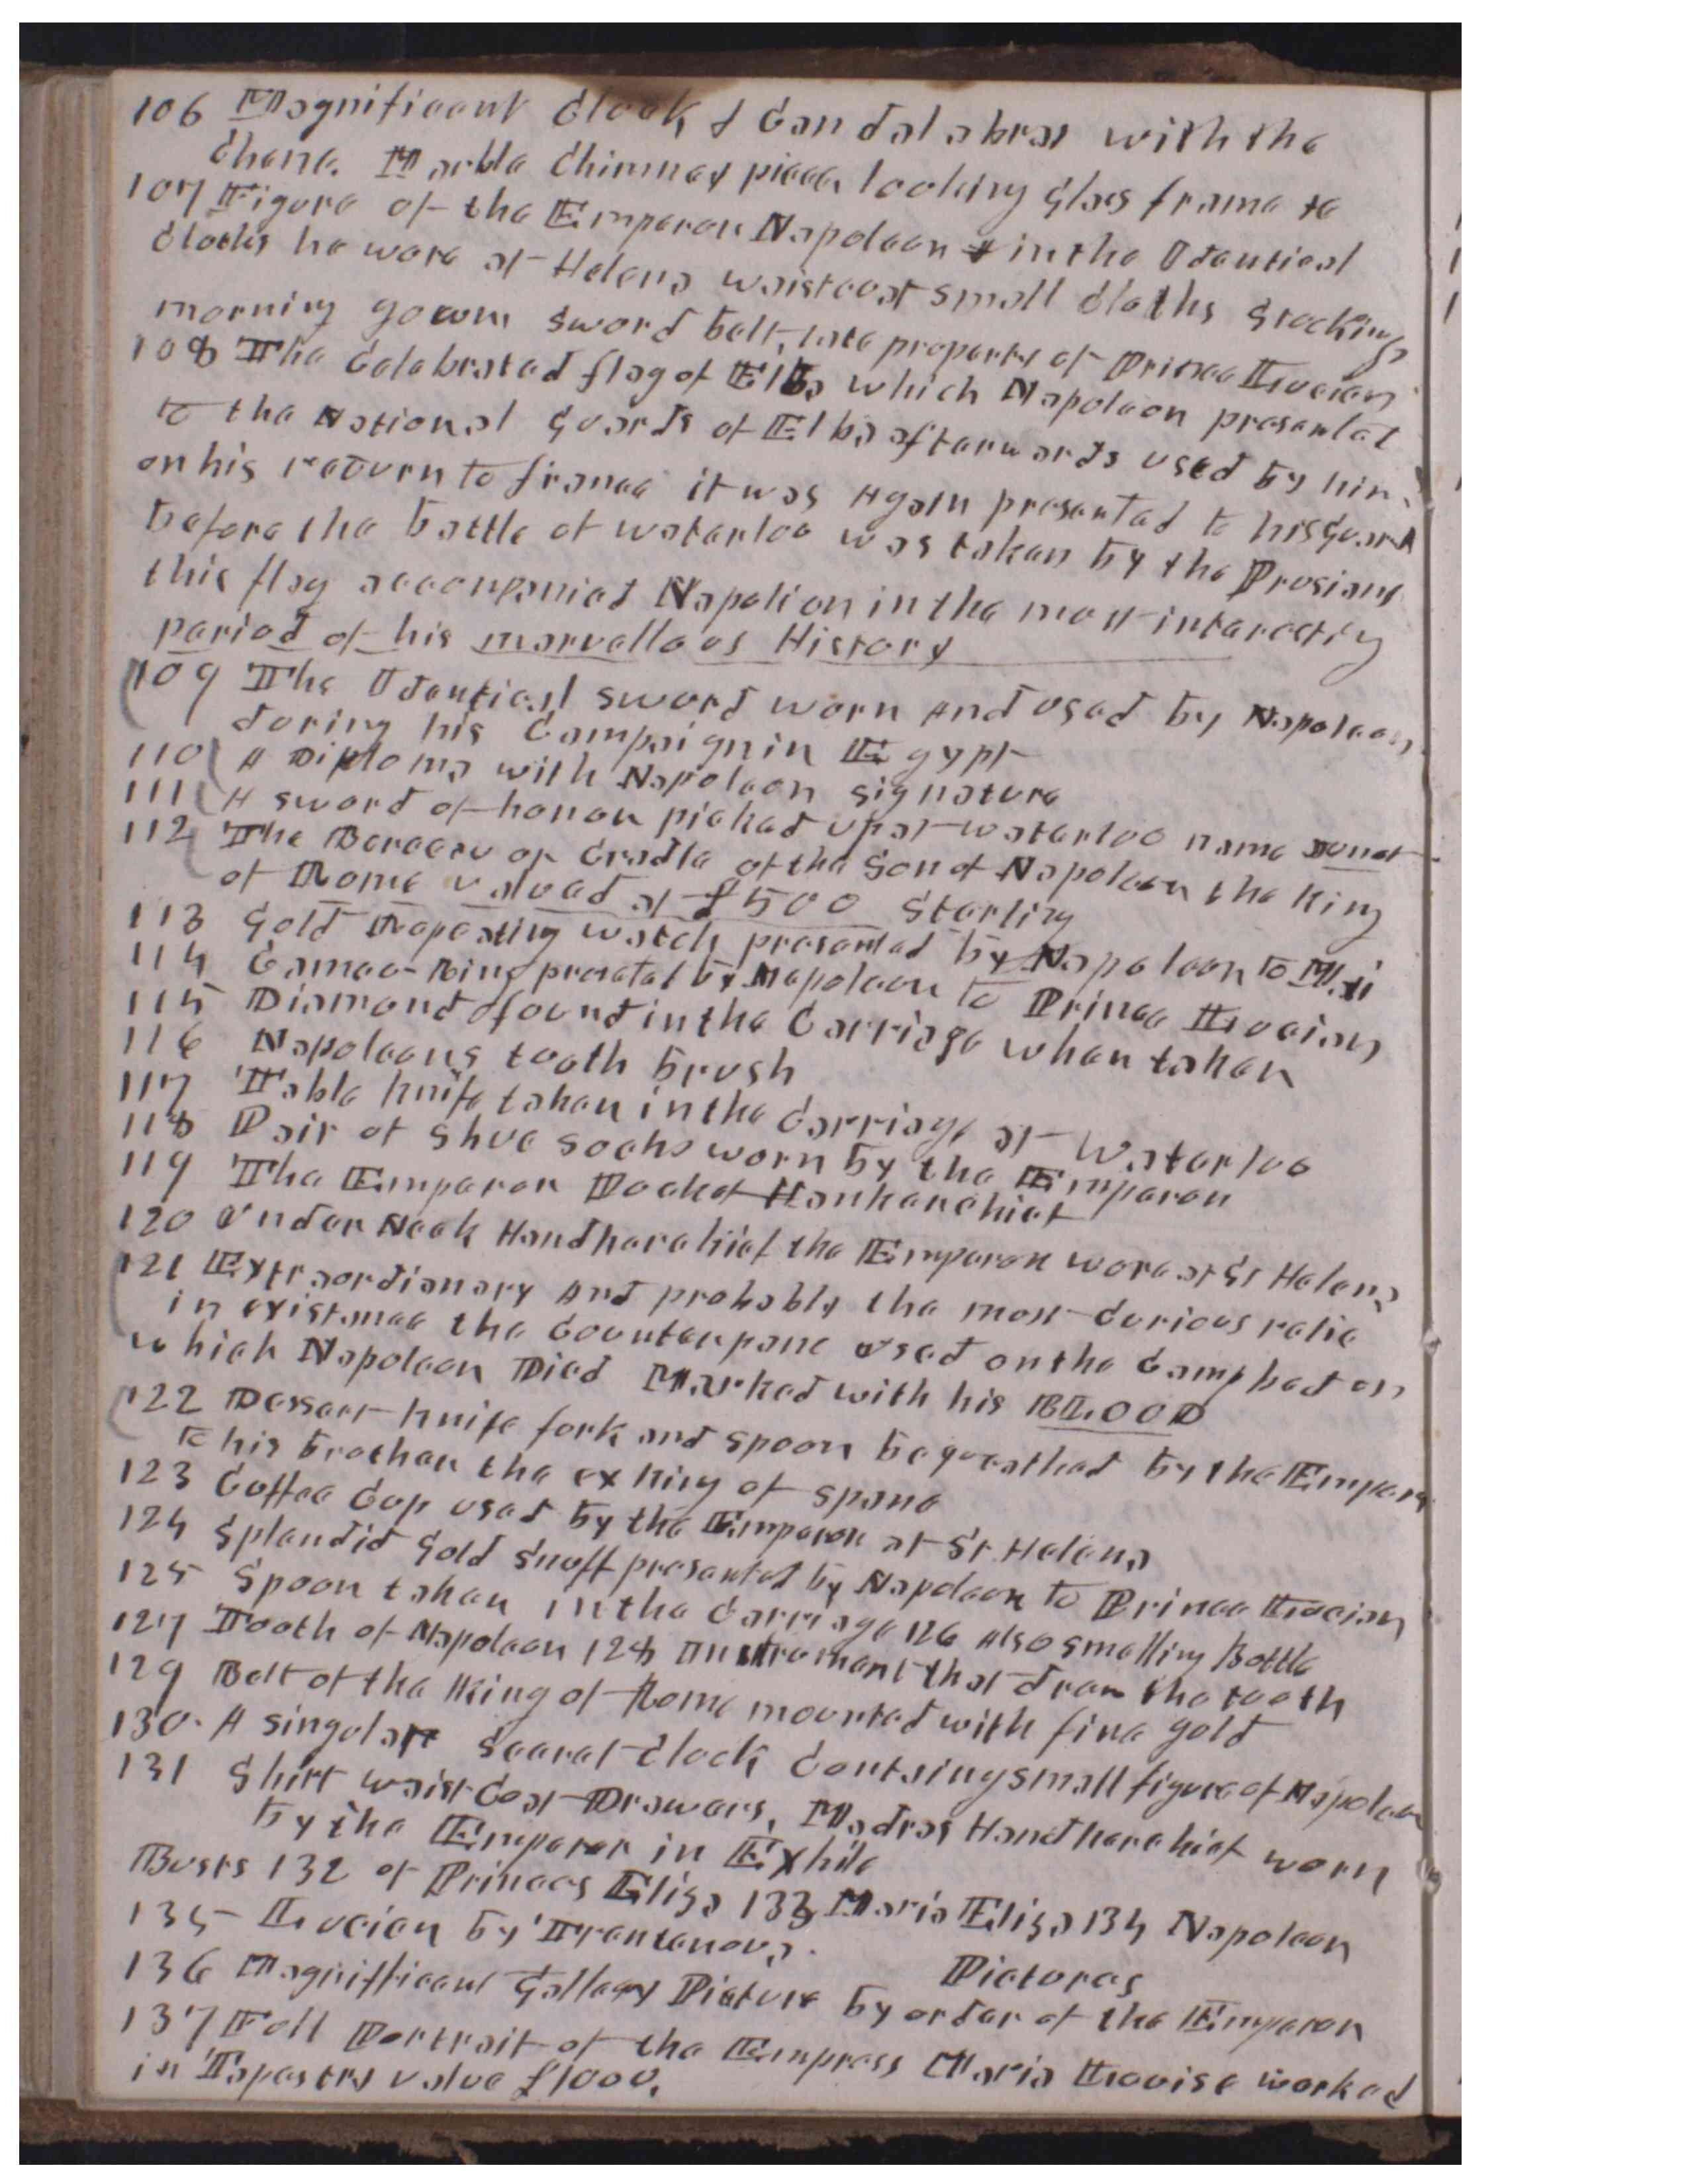 106 Magnificent Clock & Candalabras with the
Chene. Marble Chimney pieces looking glass frame te
107 Figure of the Emperor Napoleon in the Identical
Cloths he wore at Helena waistcoat small Cloths stockings
morning gown sword belt, late property of Prince Lucien
108 The Celebrated flag of Elba which Napoleon presented
to the National Guards of Elba afterwards used by him
on his return to france it was Again presented to his Guard
before the battle of waterloo was taken by the Prusians
this flag accompanied Napolion in the most interesting
period of his marvellous History
109 The Identical sword worn And used by Napoleon
during his Campaign in Egypt
110 A Diploma with Napoleon signature
111 A sword of honor picked up at waterloo name
112 The Berceau or Cradle of the Son of Napoleon the King
of Rome valued at £500 Sterling
113 Gold Repeating watch presented by Napoleon to
114 Cameo Ring presetet by Napoleon to Prince Lucian
115 Diamond found in the Carriage when taken
116 Napoleons tooth brush
117 Table knife taken in the Carriage at Waterloo
118 Pair of Shue socks worn by the Emperor
119 The Emperor Pocket Hankerchief
120 Under Neck Handkerchief the Emperor wore at St Helena
121 Extraordionary And probably the most curious relic
in existence the Counterpane used on the Camp bed on
which Napoleon Died Marked with his BLOOD
122 Dessert knife fork and spoon bequeathed by the Emperor
to his brother the ex King of spane
123 Coffee Cup used by the Emperor at St Helena
124 Splendid Gold Snuff presented by Napoleon to Prince Lucian
125 Spoon taken in the Carriage 126 Also smelling Bottle
127 Tooth of Napoleon 128 Instrument that drew the tooth
129 Belt of the King of Rome mounted with fine gold
130. A singolar Secret Clock Containg small figure of Napoleon
131 Shirt waist Coat Drawers, Madras Handkerchief worn
by the Emperor in Exhile
Busts 132 of Princes Eliza 133 Maria Eliza 134 Napoleon
135 Lucien by Trentanova.
Pictures
136 Magnifficent Gallery Picture by order of the Emperor
137 Full Portrait of the Empress Maria Louise worked
in Tapestry value £1000.